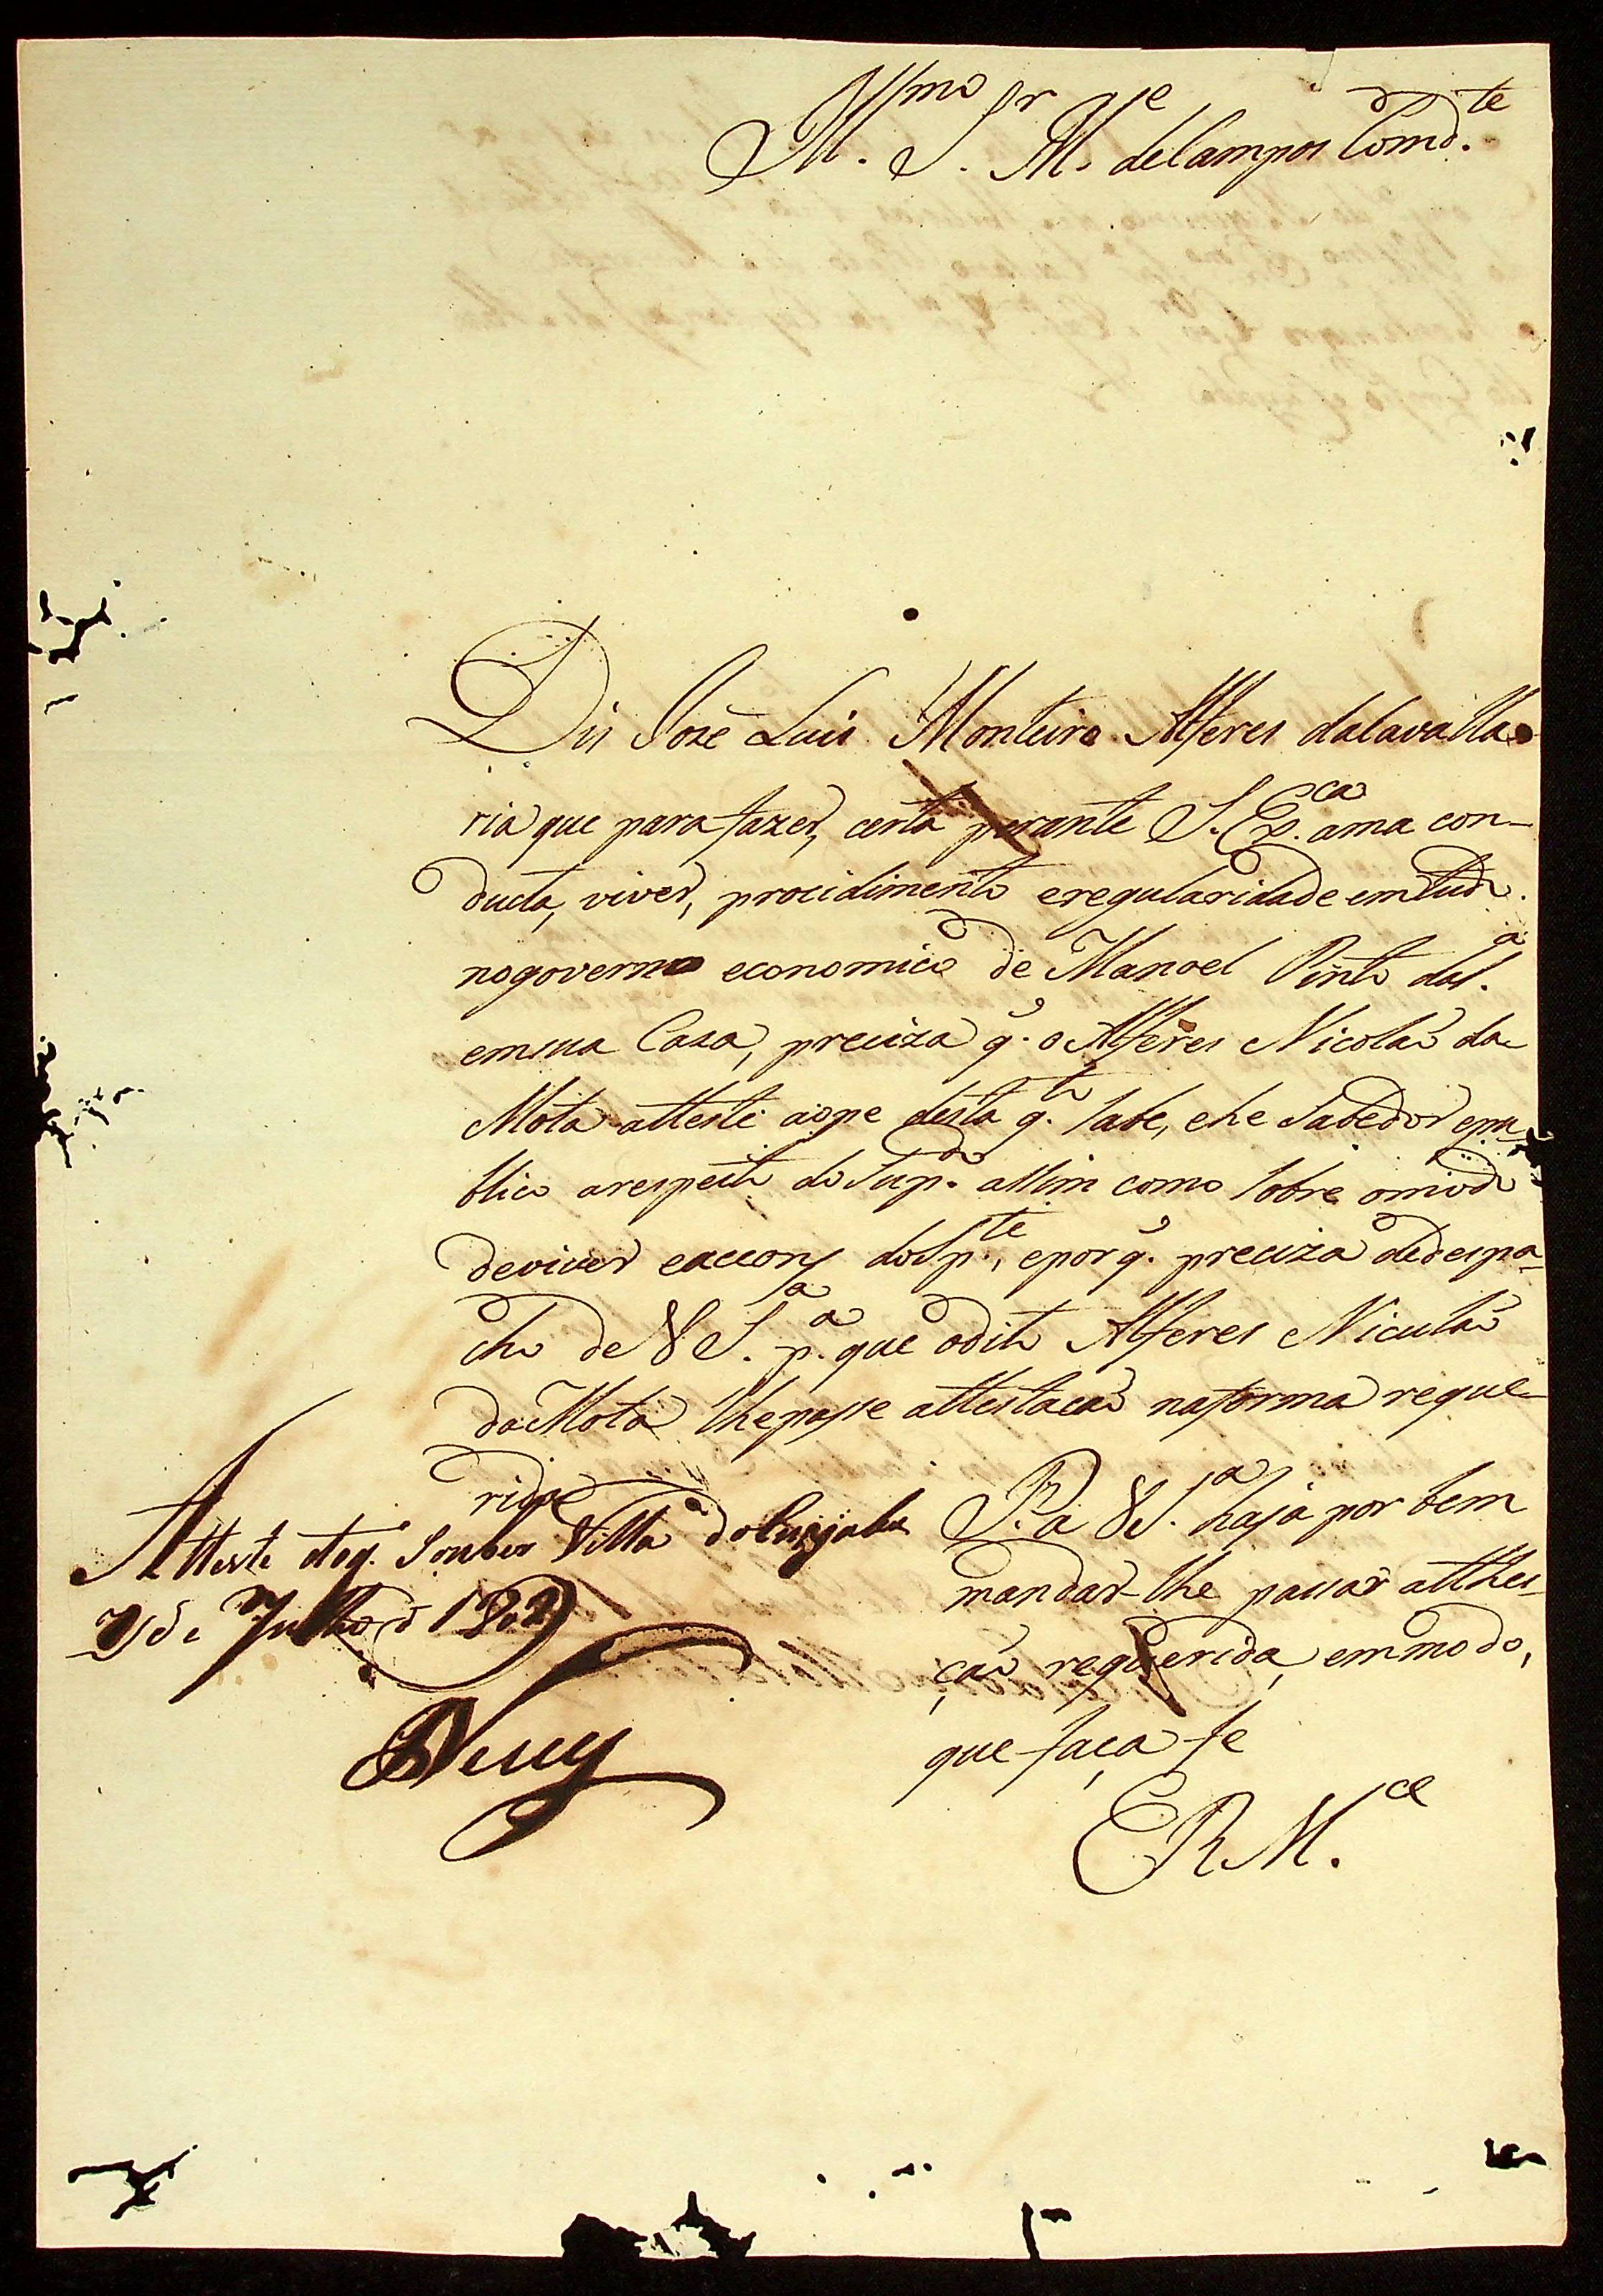 Illmo Sr M.e de Campos Comd.te
Dis Joze Luis Monteiro Alferes daCavalla
ria que para fazer, certo perante S. Ex.ca ama con-
ducta, viver, procidimento eregularidade emtudo
nogoverno economico de Manoel Pinto daS.a
emsua Caza, preciza q. o Alferes Nicoláo da
Mota atteste aope desta q.to sabe, ehe Sabedor epu
blico arespeito do Sup.do assim como sobre omodo
deviver eaccons doSp.te, epor q. preciza dedespa-
cho de VS.a p.a que odito Alferes Niculáo
daMota lhepasse attestacaõ naforma reque
rida
P. a VS.a haja por bem
mandar-lhe passar atthes-
çaõ requerida, emmodo,
que faça fe
E R M.ce
Atteste oq. souber Villa do
7 de Julho d 1802
Nery